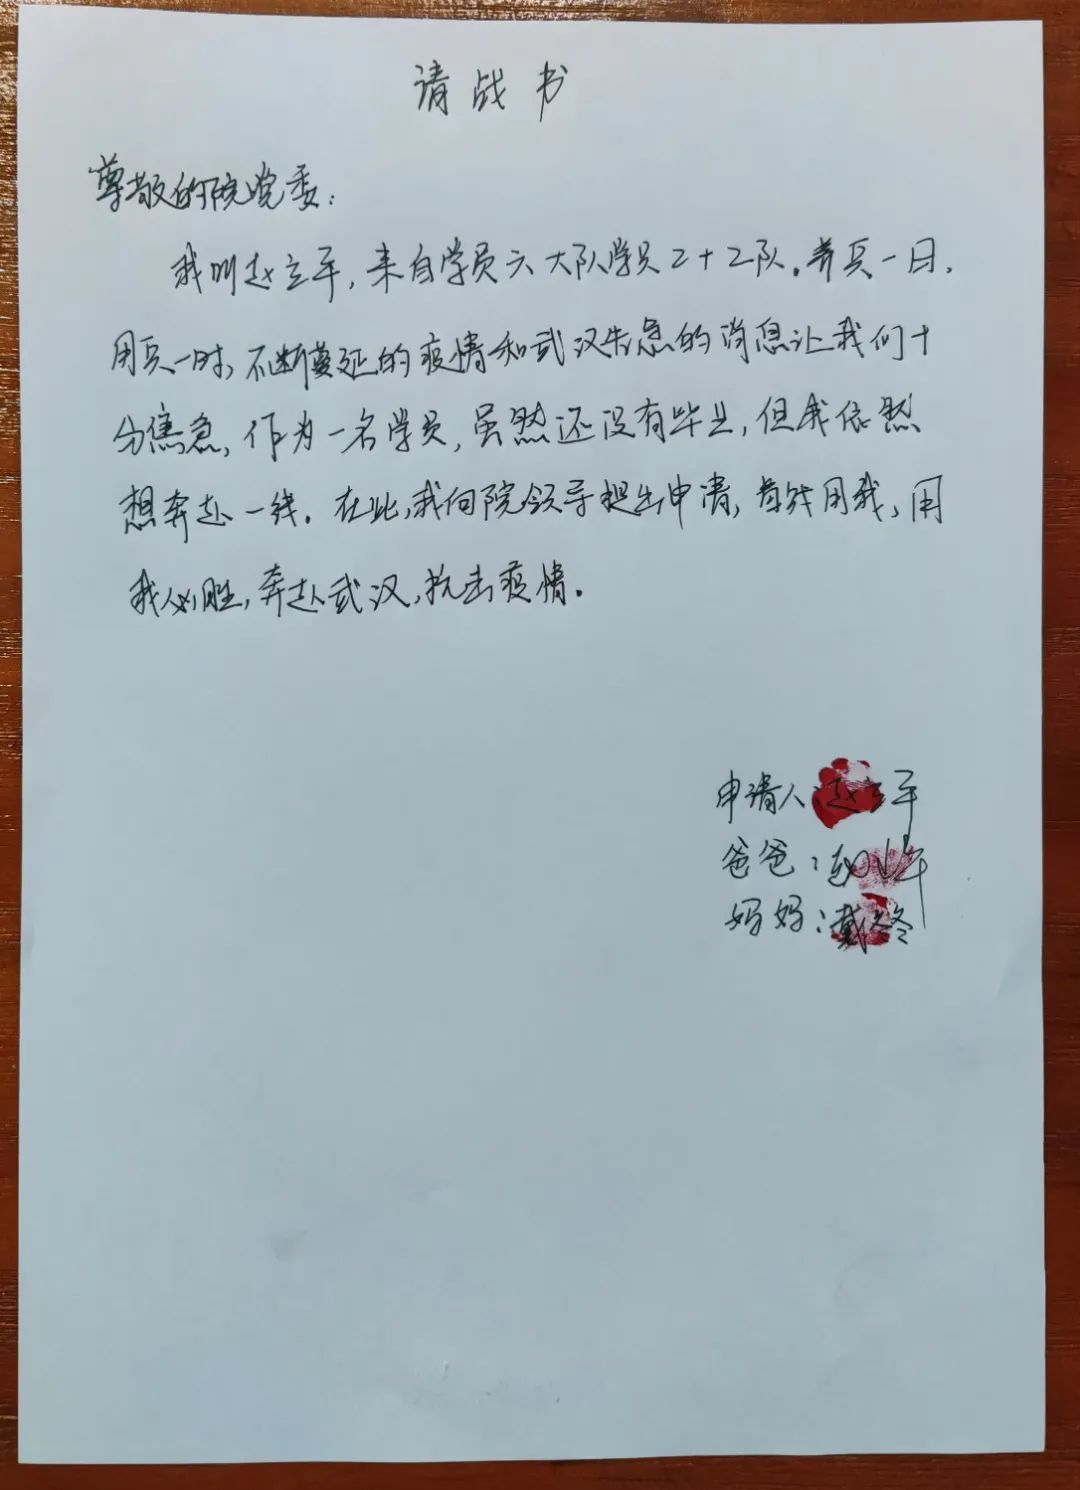 请战书
尊敬的院党委：
我叫赵立平，来自学员六大队学员二十二队。养兵一日，
用兵一时，不断蔓延的疫情和武汉告急的消息让我们十
分焦急，作为一名学员，虽然还没有毕业，但我依然
想奔赴一线。在此，我向院领导提出申请，若能用我，用
我必胜，奔赴武汉，抗击疫情。
申请人：赵立平
爸爸：赵
妈妈：戴冬